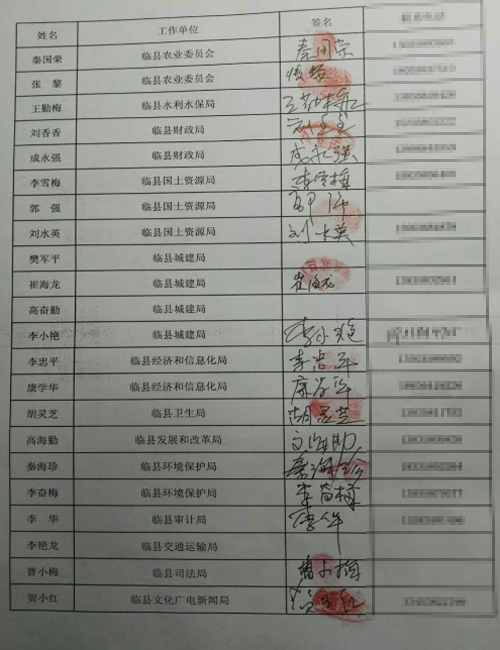 姓名 工作单位 签名
秦国荣 临县农业委员会 秦国荣
张黎 临县农业委员会
王勤梅 临县水利水保局 王勤梅
刘香香 临县财政局 刘香香
成永强 临县财政局 成永强
李雪梅 临县国土资源局 李雪梅
郭强 临县国土资源局 郭强
刘水英 临县国土资源局 刘水英
樊军平 临县城建局
崔海龙 临县城建局 崔海龙
高奋勤 临县城建局
李小艳 临县城建局 李小艳
李忠平 临县经济和信息化局 李忠平
康学华 临县经济和信息化局 康学华
胡灵芝 临县卫生局 胡灵芝
高海勤 临县发展和改革局
秦海珍 临县环境保护局 秦海珍
李奋梅 临县环境保护局 李奋梅
李华 临县审计局 李华
李艳龙 临县交通运输局
曹小梅 临县司法局 曹小梅
贺小红 临县文化广电新闻局 贺小红